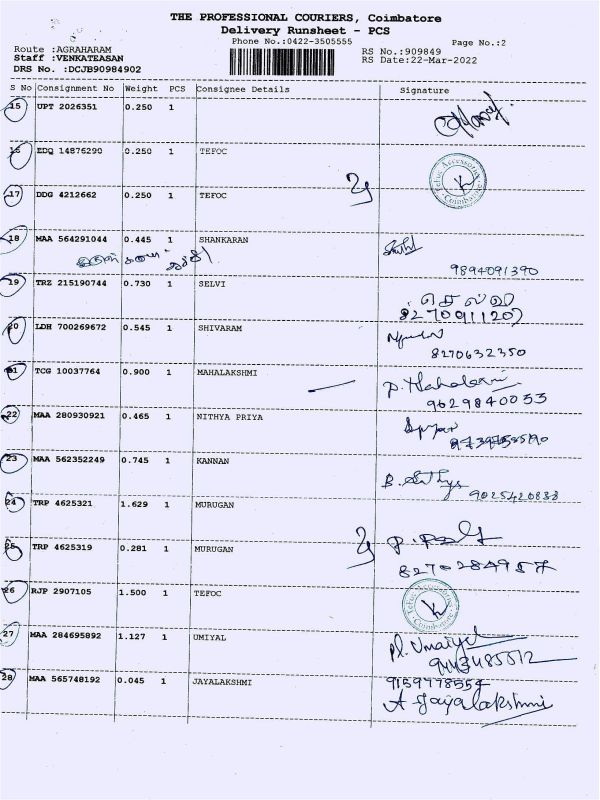 THE PROFESSIONAL COURIERS, Coimbatore
Delivery Runsheet - PCS
Phone No.:0422-3505555
Page No.:2
Route :AGRAHARAM
Staff :VENKATEASAN
DRS No. :DCJB90984902
RS No.:909849
RS Date:22-Mar-2022
S No Consignment No Weight PCS Consignee Details Signature
15 UPT 2026351 0.250 1
16 EDQ 14876290 0.250 1 TEFOC
Tefoc Accessories Coimbatore
17 DDG 4212662 0.250 1 TEFOC
18 MAA 564291044 0.445 1 SHANKARAN
9894091390
19 TRZ 215190744 0.730 1 SELVI
செல்வி
8270911207
20 LDH 700269672 0.545 1 SHIVARAM
8270632350
21 TCG 10037764 0.900 1 MAHALAKSHMI
P. Mahalaxmi
9629840053
22 MAA 280930921 0.465 1 NITHYA PRIYA
23 MAA 562352249 0.745 1 KANNAN
9025420833
24 TRP 4625321 1.629 1 MURUGAN
25 TRP 4625319 0.281 1 MURUGAN
8270284957
26 RJP 2907105 1.500 1 TEFOC
Tefoc Accessories Coimbatore
27 MAA 284695892 1.127 1 UMIYAL
Pl. Umaiyal
9443485512
28 MAA 565748192 0.045 1 JAYALAKSHMI
9159778554
A Jayalakshmi